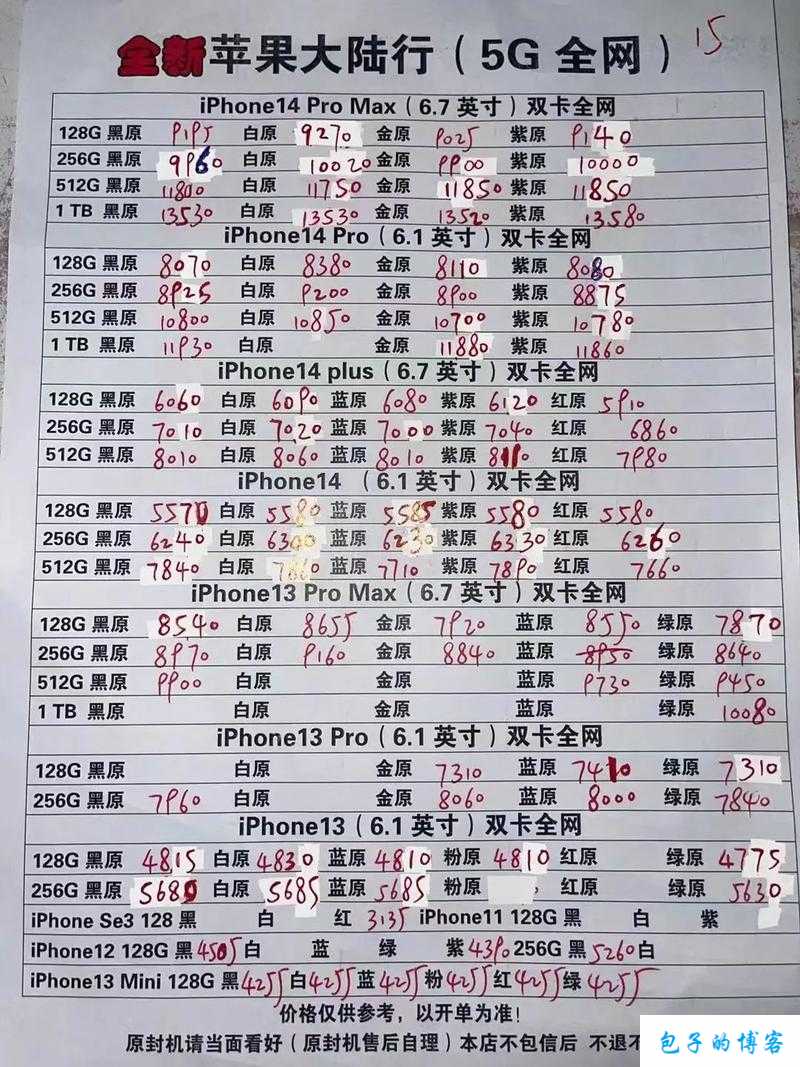 全新苹果大陆行（5G 全网） 15
iPhone14 Pro Max（6.7 英寸）双卡全网
128G 黑原 9195 白原 9270 金原 9025 紫原 9140
256G 黑原 9960 白原 10020 金原 9900 紫原 10000
512G 黑原 11800 白原 11750 金原 11850 紫原 11850
1 TB 黑原 13530 白原 13530 金原 13520 紫原 13580
iPhone14 Pro（6.1 英寸）双卡全网
128G 黑原 8070 白原 8380 金原 8110 紫原 8080
256G 黑原 8925 白原 9200 金原 8900 紫原 8875
512G 黑原 10800 白原 10850 金原 10700 紫原 10780
1 TB 黑原 11930 白原 金原 11880 紫原 11860
iPhone14 plus（6.7 英寸）双卡全网
128G 黑原 6060 白原 6090 蓝原 6080 紫原 6120 红原 5910
256G 黑原 7010 白原 7020 蓝原 7000 紫原 7040 红原 6860
512G 黑原 8010 白原 8060 蓝原 8010 紫原 8110 红原 7980
iPhone14 （6.1 英寸）双卡全网
128G 黑原 5570 白原 5580 蓝原 5585 紫原 5580 红原 5580
256G 黑原 6240 白原 6300 蓝原 6230 紫原 6330 红原 6260
512G 黑原 7840 白原 7860 蓝原 7710 紫原 7890 红原 7660
iPhone13 Pro Max（6.7 英寸）双卡全网
128G 黑原 8540 白原 8655 金原 7920 蓝原 8550 绿原 7870
256G 黑原 8970 白原 9160 金原 8840 蓝原 8950 绿原 8640
512G 黑原 9900 白原 金原 蓝原 9730 绿原 9450
1 TB 黑原 白原 金原 蓝原 绿原 10080
iPhone13 Pro（6.1 英寸）双卡全网
128G 黑原 白原 金原 7310 蓝原 7410 绿原 7310
256G 黑原 7960 白原 金原 8060 蓝原 8000 绿原 7840
iPhone13（6.1 英寸）双卡全网
128G 黑原 4815 白原 4830 蓝原 4810 粉原 4810 红原 绿原 4775
256G 黑原 5680 白原 5685 蓝原 5685 粉原 红原 绿原 5630
iPhone Se3 128 黑 白 红 3135 iPhone11 128G 黑 白 紫
iPhone12 128G 黑 4505 白 蓝 绿 紫 4390 256G 黑 5260 白
iPhone13 Mini 128G 黑 4255 白 4255 蓝 4255 粉 4255 红 4255 绿 4255
价格仅供参考，以开单为准！
原封机请当面看好（原封机售后自理）本店不包信后 不退不
包子的博客